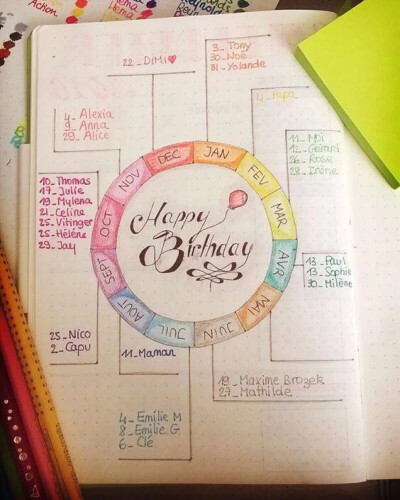 Action
22_ DiMi♥
3_ Tony
30_ Noé
31_ Yolande
4_ Papa
4_ Alexia
9_ Anna
29_ Alice
11_ Moi
12_ Gérard
26_ Rose
28_ Irène
10_ Thomas
17_ Julie
19_ Mylena
21_ Celina
25_ Vitinger
25_ Hélène
29_ Jay
JAN
FEV
MAR
AVR
MAI
JUIN
JUIL
AOUT
SEPT
OCT
NOV
DEC
Happy
Birthday
13_ Paul
13_ Sophie
30_ Milène
25_ Nico
2_ Capu
11_ Maman
19_ Maxime Brozek
27_ Mathilde
4_ Emilie M
8_ Emilie G
6_ Clé